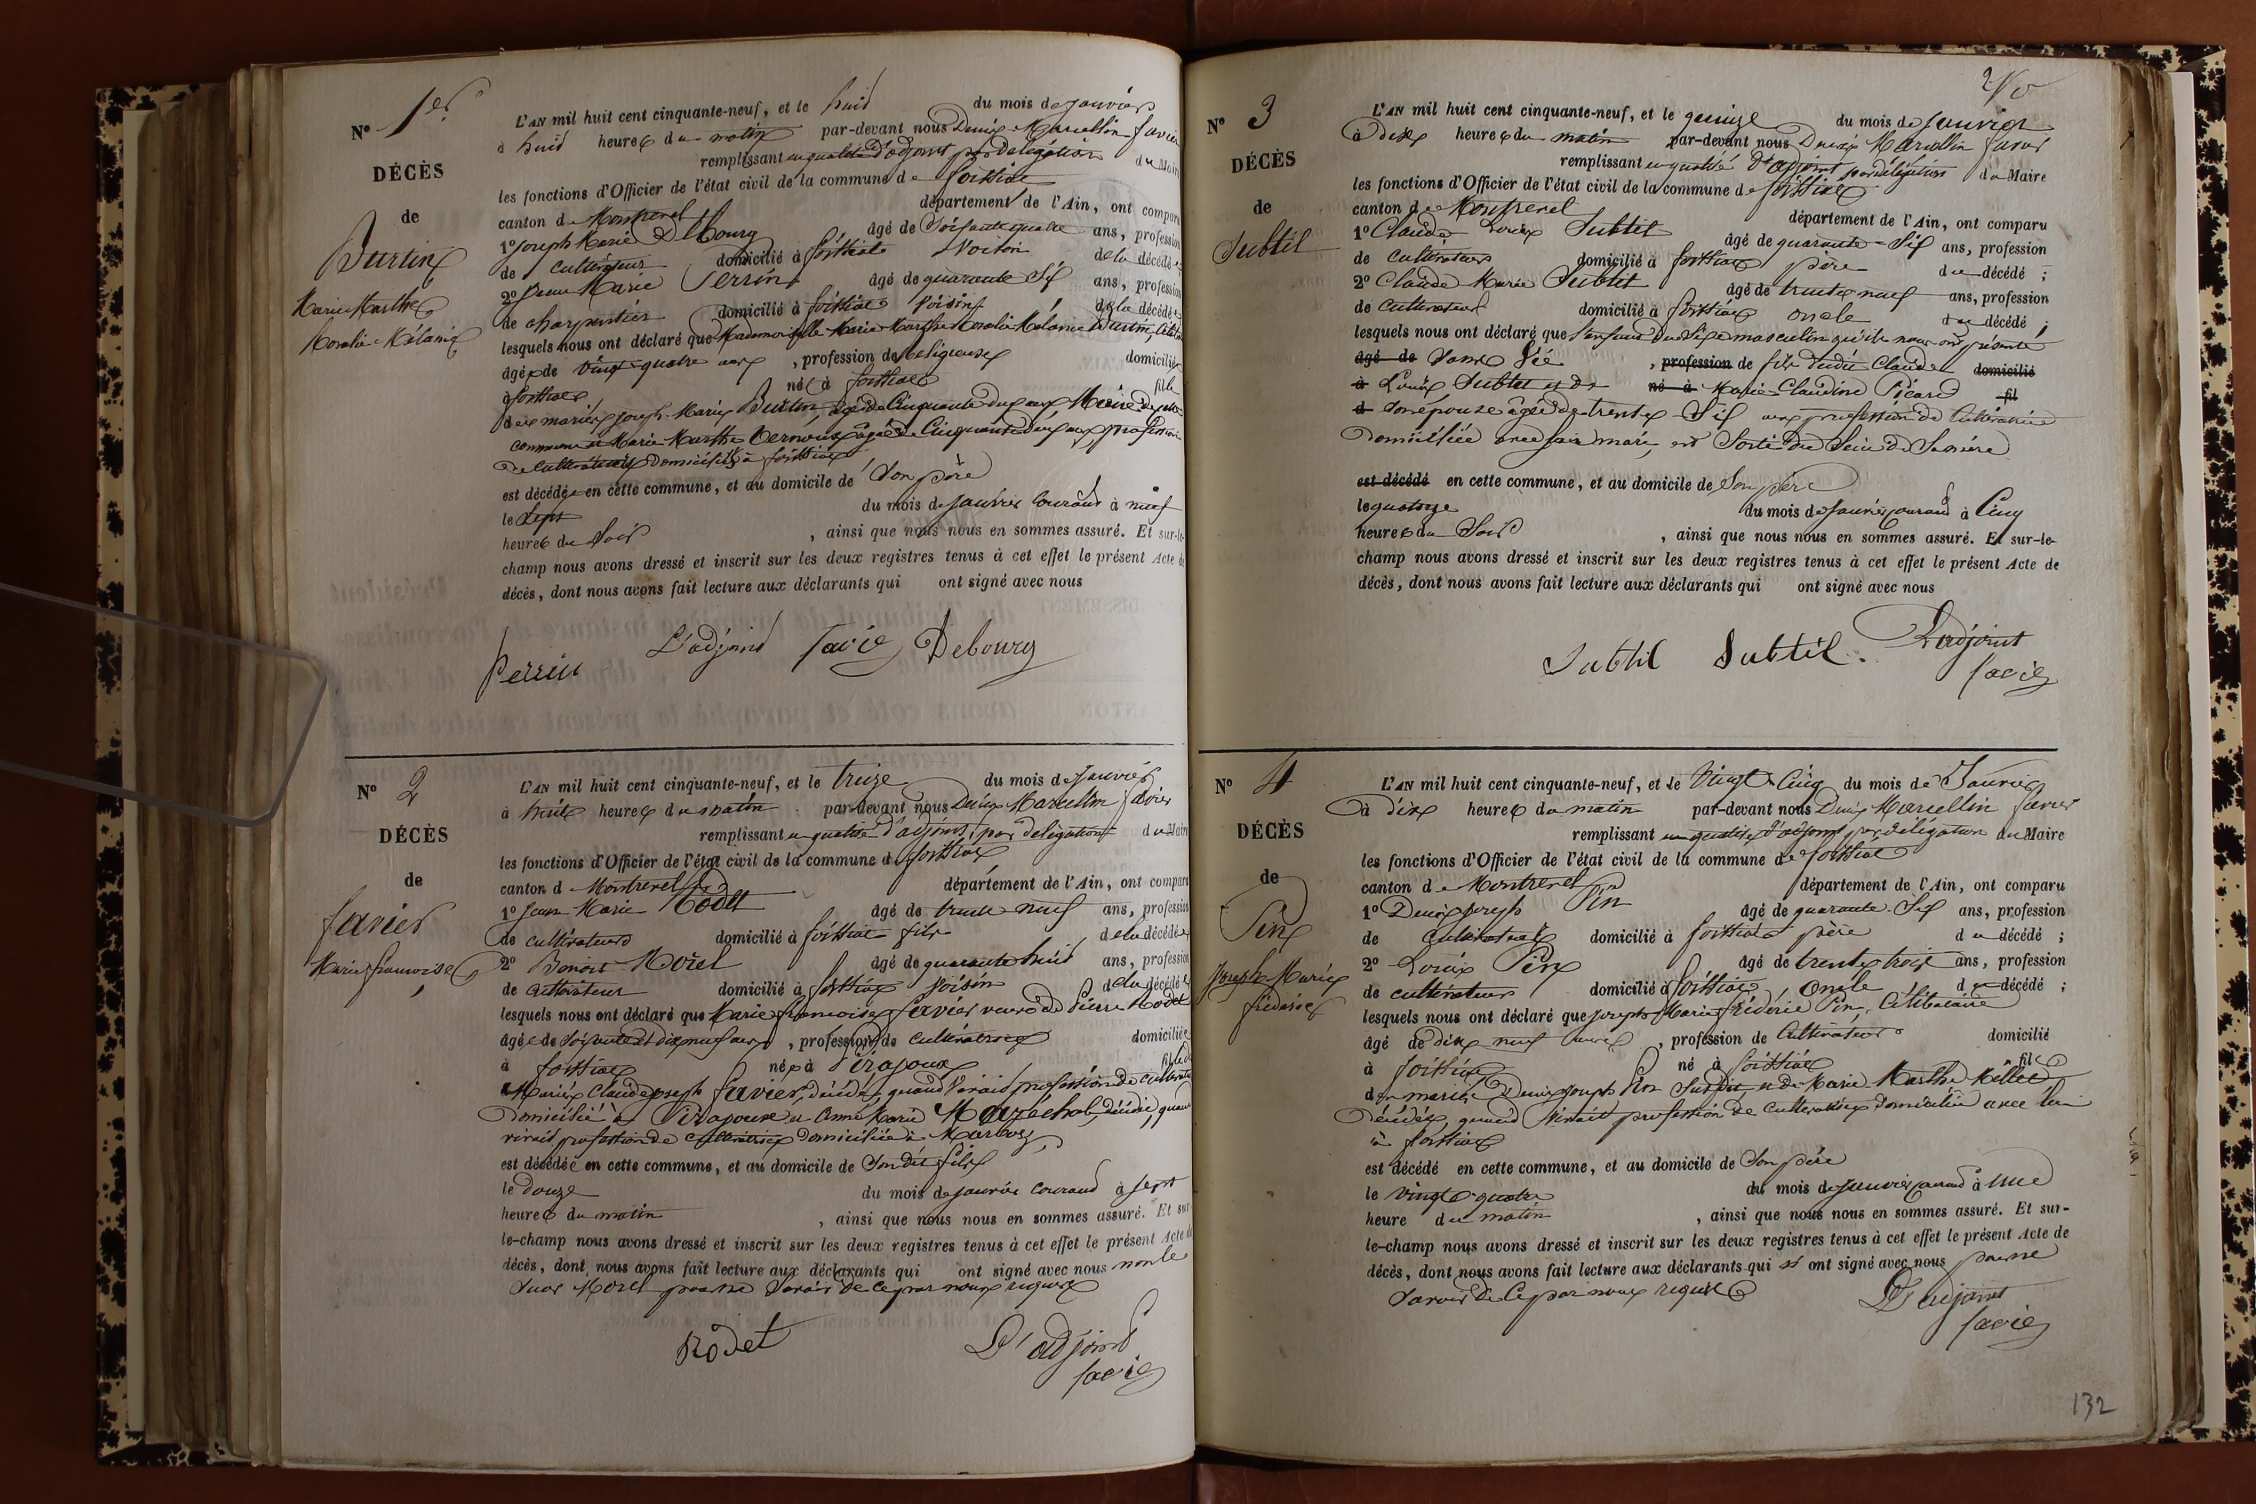 N° 1er
DÉCÈS
de
Burtin
Marie Marthe
Coralie Mélanie
L'AN mil huit cent cinquante-neuf, et le huid du mois de janvier
à huid heures du matin par-devant nous Denis Marcellin favier
remplissant en qualité d'adjoint par délégation du Maire
les fonctions d'Officier de l'état civil de la commune de foissiat
canton de Montrevel département de l'Ain, ont comparu
1° Joseph Marie Debourg âgé de soixante quatre ans, profession
de cultivateur domicilié à foissiat Voisin de la décédée
2° Marie Perrin âgé de quarante six ans, profession
de charpentier domicilié à foissiat Voisin de la décédée
lesquels nous ont déclaré que Mademoiselle Marie Marthe Coralie Mélanie Burtin
âgée de vingt quatre ans, profession de Religieuse domiciliée
à foissiat née à foissiat fille
des mariés joseph Marie Burtin, âgé de Cinquante deux ans Maire de cette
commune et Marie Marthe âgée de Cinquante deux ans, profession
de cultivateurs domiciliés à foissiat
est décédée en cette commune, et au domicile de Son père
le sept du mois de janvier Courand à neuf
heures du Soir, ainsi que nous nous en sommes assuré. Et sur-le-
champ nous avons dressé et inscrit sur les deux registres tenus à cet effet le présent Acte de
décès, dont nous avons fait lecture aux déclarants qui ont signé avec nous
Perrin L'adjoind favier Debourg
N° 2
DÉCÈS
de
favier
Marie françoise
L'AN mil huit cent cinquante-neuf, et le treize du mois de janvier
à huit heures du matin par-devant nous Denis Marcellin favier
remplissant en qualité d'adjoint par délégation du Maire
les fonctions d'Officier de l'état civil de la commune de foissiat
canton de Montrevel département de l'Ain, ont comparu
1° Jean Marie Rodet âgé de trente neuf ans, profession
de cultivateur domicilié à foissiat fils de la décédée
2° Benoit Morel âgé de quarante huid ans, profession
de cultivateur domicilié à foissiat Voisin de la décédée
lesquels nous ont déclaré que Marie françoise favier veuve de Pierre Rodet
âgée de soixante et dix neuf ans, profession de cultivatrice domiciliée
à foissiat née à Pirajoux fille de
Mariés Claude joseph favier, décédé, quand vivait profession de cultivateur
domicilié à Pirajoux et Marie Maréchal, décédée, quand
vivait profession de cultivatrice domiciliée à Marboz,
est décédée en cette commune, et au domicile de Son dit fils
le douze du mois de janvier Courand à sept
heures du matin, ainsi que nous nous en sommes assuré. Et sur-
le-champ nous avons dressé et inscrit sur les deux registres tenus à cet effet le présent Acte de
décès, dont nous avons fait lecture aux déclarants qui ont signé avec nous non le
Morel pour ne Savoir de ce par nous requis
Rodet L'adjoind
favier
N° 3
DÉCÈS
de
Subtil
L'AN mil huit cent cinquante-neuf, et le quinze du mois de janvier
à dix heures du matin par-devant nous Denis Marcellin favier
remplissant en qualité d'adjoint par délégation du Maire
les fonctions d'Officier de l'état civil de la commune de foissiat
canton de Montrevel département de l'Ain, ont comparu
1° Claude Louis Subtil âgé de quarante-six ans, profession
de cultivateur domicilié à foissiat père du décédé ;
2° Claude Marie Subtil âgé de trente neuf ans, profession
de cultivateur domicilié à foissiat oncle du décédé ;
lesquels nous ont déclaré que l'enfant du sexe masculin qu'ils nous ont présenté
âgé de Sans vie, profession de fils dudit Claude domicilié
à Louis Subtil et de né à Marie-Claudine Picard fil
d son épouse âgée de trente-six ans profession de Cultivatrice
domiciliée avec son mari, est Sorti du Sein de Sa mère
est décédé en cette commune, et au domicile de Son père
le quatorze du mois de janvier courand à Cinq
heures du Soir, ainsi que nous nous en sommes assuré. Et sur-le-
champ nous avons dressé et inscrit sur les deux registres tenus à cet effet le présent Acte de
décès, dont nous avons fait lecture aux déclarants qui ont signé avec nous
Subtil Subtil. L'adjoint
favier
N° 4
DÉCÈS
de
Pin
Joseph Marie
fréderic
L'AN mil huit cent cinquante-neuf, et le Vingt-Cinq du mois de Janvier
à dix heures du matin par-devant nous Denis Marcellin favier
remplissant en qualité d'adjoint par délégation du Maire
les fonctions d'Officier de l'état civil de la commune de foissiat
canton de Montrevel département de l'Ain, ont comparu
1° Denis joseph Pin âgé de quarante-six ans, profession
de cultivateur domicilié à foissiat père du décédé ;
2° Louis Pin âgé de trente trois ans, profession
de cultivateur domicilié à foissiat Oncle du décédé ;
lesquels nous ont déclaré que joseph Marie fréderic Pin, Célibataire
âgé de dix neuf ans, profession de Cultivateur domicilié
à foissiat né à foissiat fils
des mariés Denis joseph Pin Susdit, et de Marie Marthe Millet
Décédée, quand vivait profession de cultivatrice domiciliée avec lui
à foissiat
est décédé en cette commune, et au domicile de Son père
le vingt-quatre du mois de janvier courand à une
heure du matin, ainsi que nous nous en sommes assuré. Et sur-
le-champ nous avons dressé et inscrit sur les deux registres tenus à cet effet le présent Acte de
décès, dont nous avons fait lecture aux déclarants qui n' ont signé avec nous pour ne
Savoir de Ce par nous requis
L'adjoint
favier
132